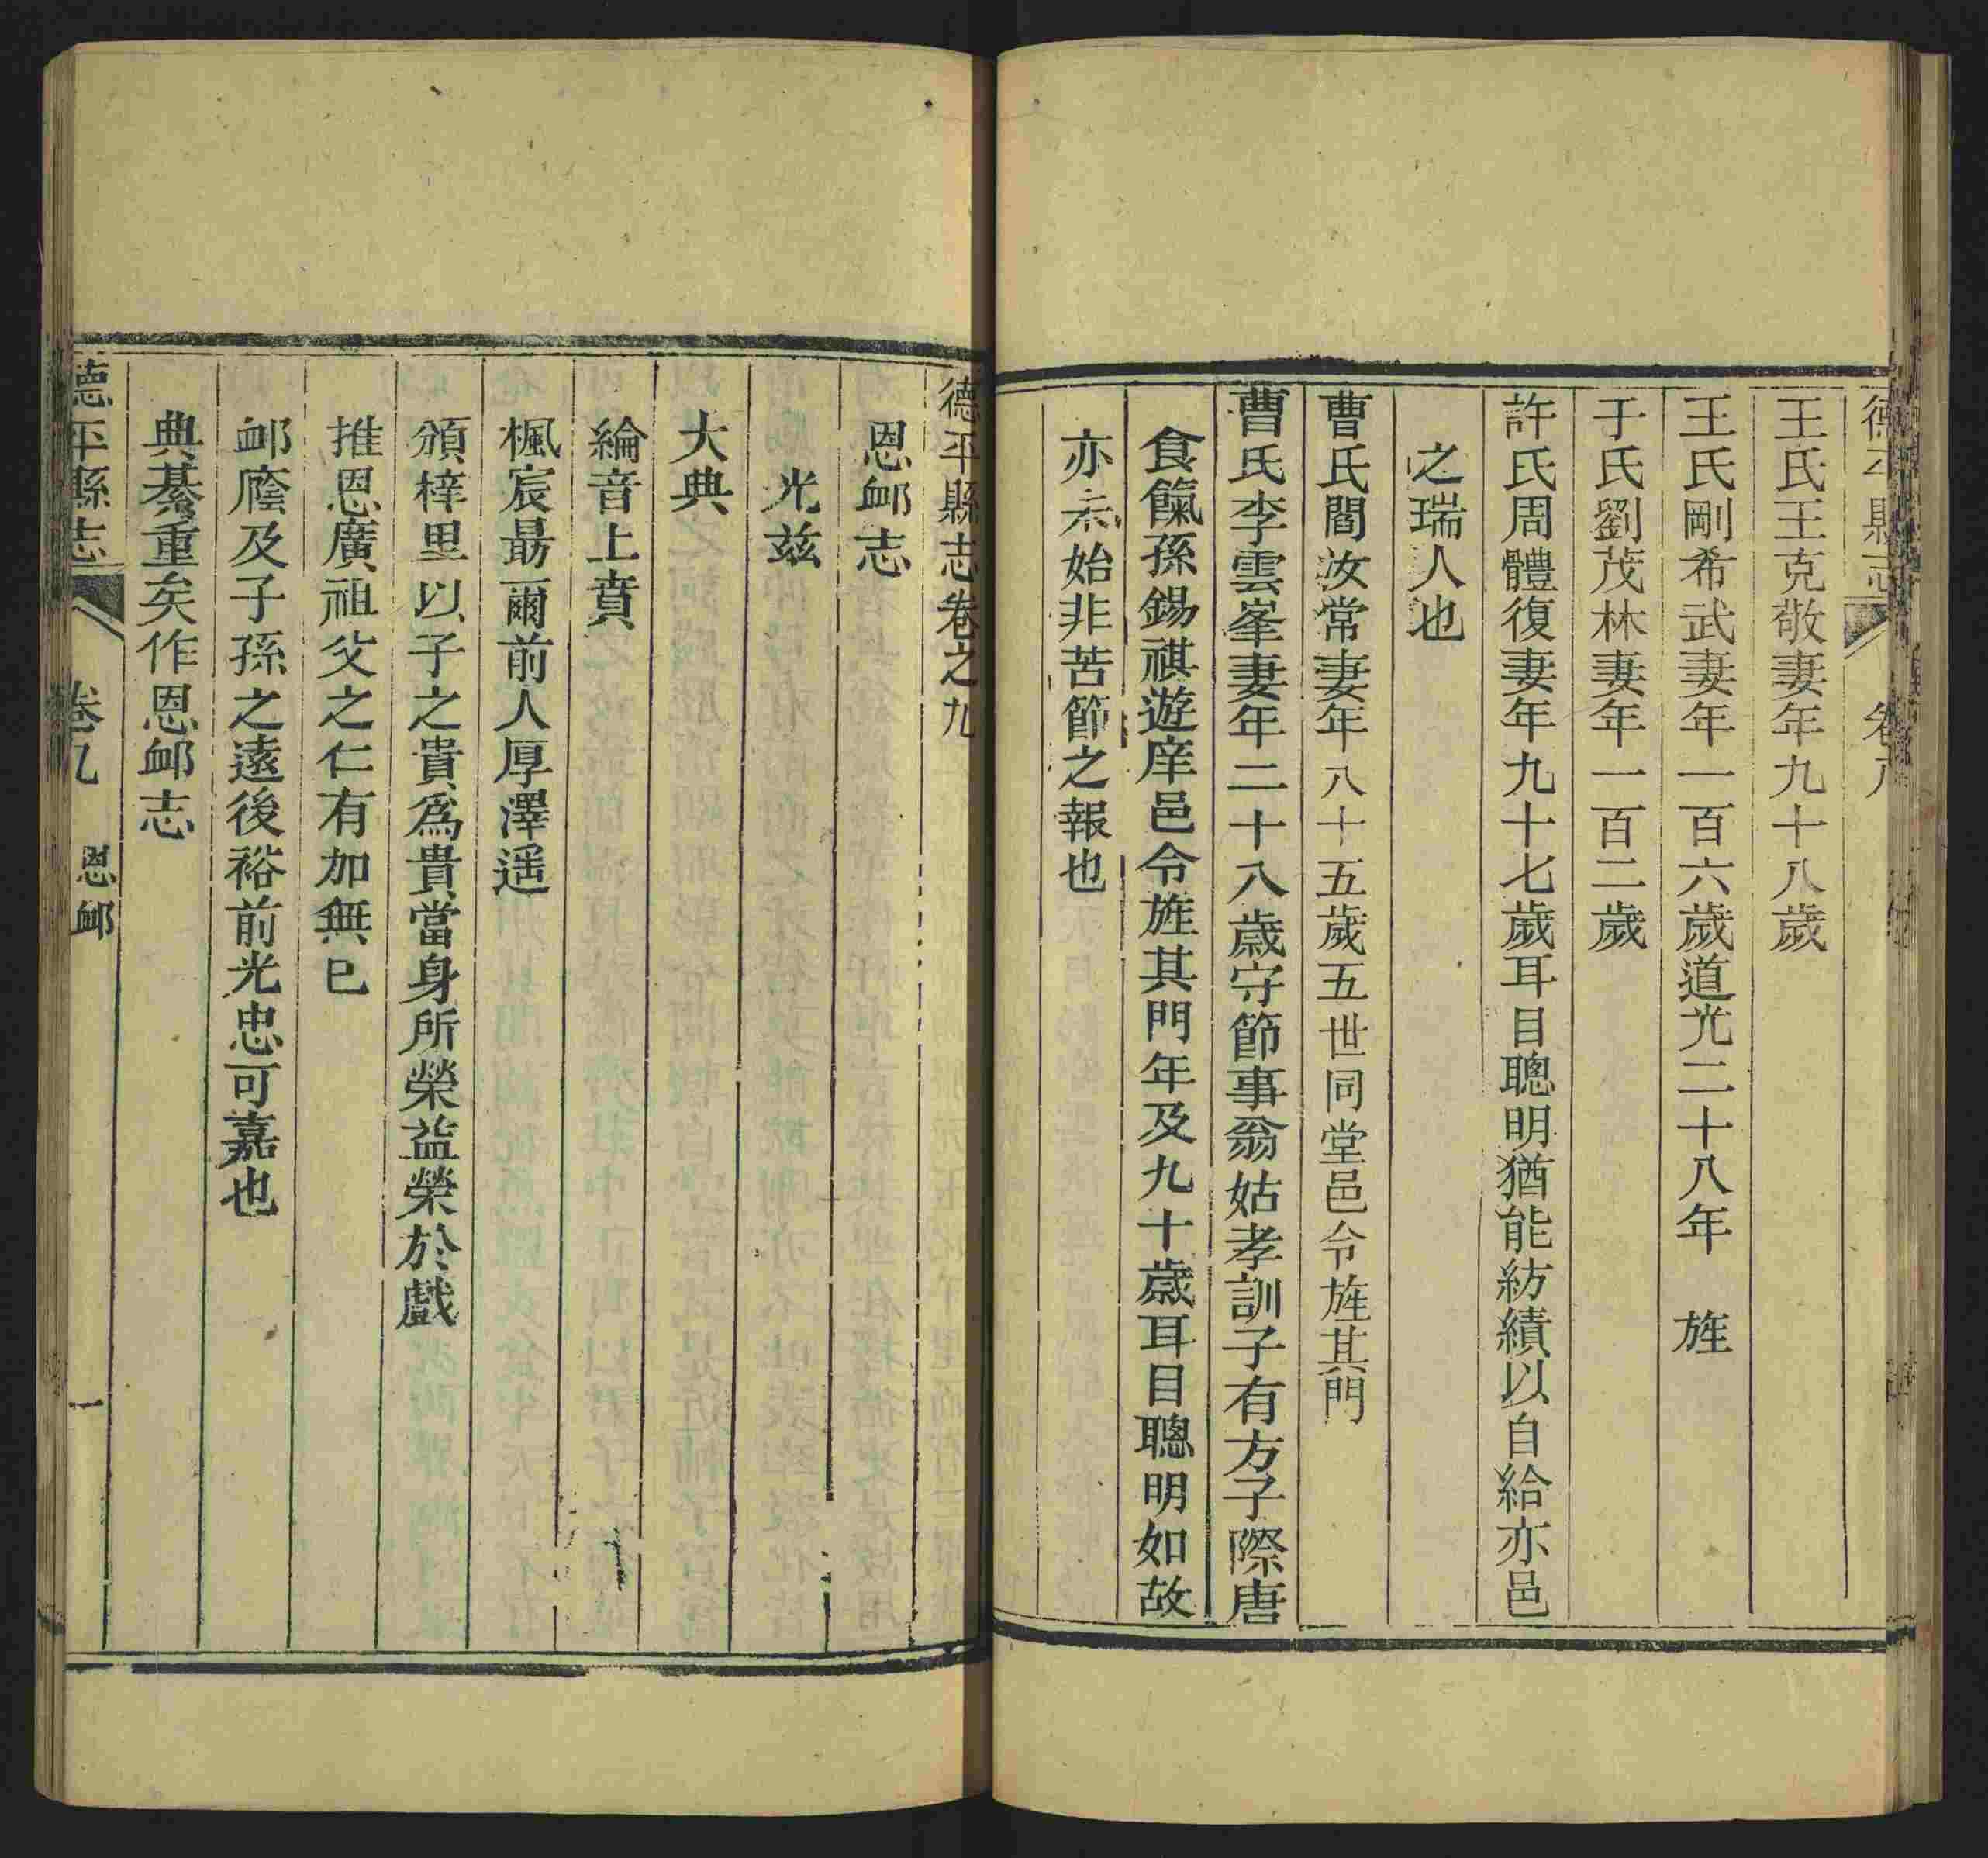 德平縣志 卷八
王氏王克敬妻年九十八歲
王氏剛希武妻年一百六歲道光二十八年 旌
于氏劉茂林妻年一百二歲
許氏周體復妻年九十七歲耳目聰明猶能紡績以自給亦邑
之瑞人也
曹氏閻汝常妻年八十五歲五世同堂邑令旌其門
曹氏李雲峯妻年二十八歲守節事翁姑孝訓子有方子際唐
食餼孫錫祺遊庠邑令旌其門年及九十歲耳目聰明如故
亦未始非苦節之報也
德平縣志卷之九
恩卹志
光兹
大典
綸音上賁
楓宸最爾前人厚澤遥
頒梓里以子之貴爲貴當身所榮益榮於戲
推恩廣祖父之仁有加無已
卹廕及子孫之遠後裕前光忠可嘉也
典綦重矣作恩卹志
德平縣志 卷九 恩卹 一